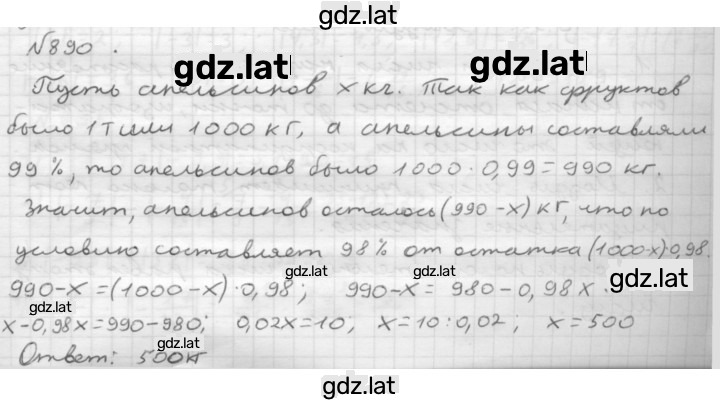 gdz.lat
№890.
gdz.lat gdz.lat
Пусть апельсинов x кг. Так как фруктов
было 1т или 1000 кг, а апельсины составляли
99%, то апельсинов было 1000·0,99=990 кг.
Значит, апельсинов осталось (990-x) кг, что по
условию составляет 98% от остатка (1000-x)0,98.
gdz.lat gdz.lat
990-x=(1000-x)·0,98; 990-x=980-0,98x.
gdz.lat
x-0,98x=990-980; 0,02x=10; x=10:0,02; x=500
gdz.lat gdz.lat
Ответ: 500кг
gdz.lat